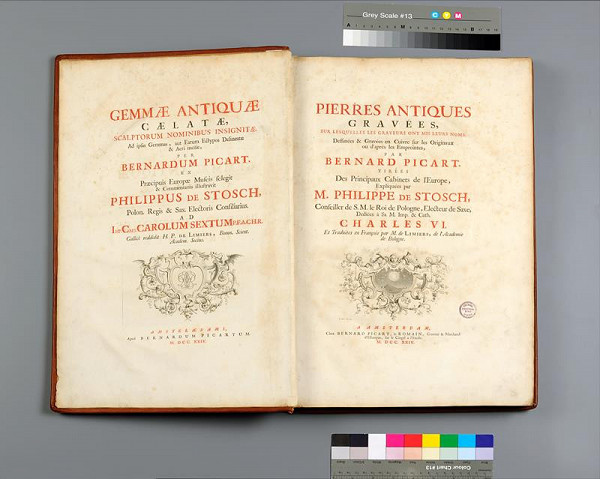 Grey Scale #13
C Y M
A M B
GEMMÆ ANTIQUÆ
CÆLATÆ,
SCALPTORUM NOMINIBUS INSIGNITÆ.
Ad ipsas Gemmas, aut Earum Ectypos Delineatæ
& Æri incisæ,
PER
BERNARDUM PICART.
EX
Præcipuis Europæ Museis selegit
& Commentariis illustravit
PHILIPPUS DE STOSCH,
Polon. Regis & Sax. Electoris Consiliarius.
AD
CAROLUM SEXTUM
Gallicè reddidit H. P. DE LIMIERS, Bonon. Scient.
Academ. Socius.
AMSTELÆDAMI,
Apud BERNARDUM PICARTUM
M. DCC. XXIV.
PIERRES ANTIQUES
GRAVÉES,
SUR LESQUELLES LES GRAVEURS ONT MIS LEURS NOMS.
Dessinées & Gravées en Cuivre sur les Originaux
ou d'après les Empreintes,
PAR
BERNARD PICART.
TIRÉES
Des Principaux Cabinets de l'Europe,
Expliquées par
M. PHILIPPE DE STOSCH,
Conseiller de S. M. le Roi de Pologne, Electeur de Saxe,
Dediées à Sa M. Imp. & Cath.
CHARLES VI.
Et Traduites en François par M. de LIMIERS, de l'Academie
de Bologne.
A AMSTERDAM,
Chez BERNARD PICART, le ROMAIN, Graveur & Marchand
d'Estampes, sur le Cingel
M. DCC. XXIV.
Colour Chart #13